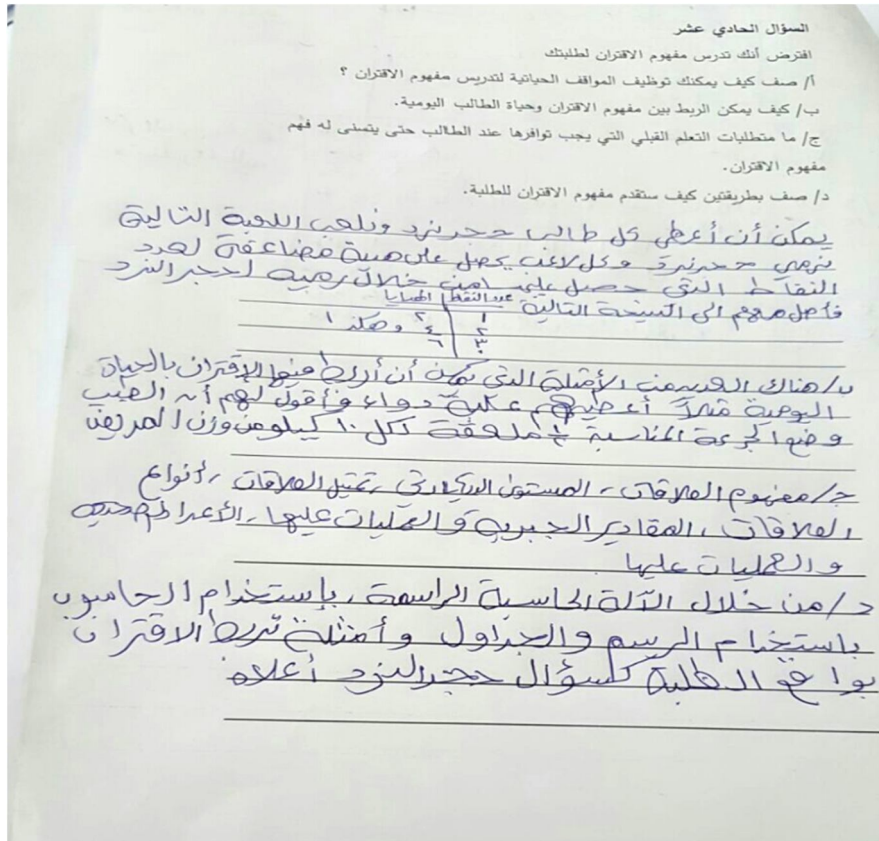 السؤال الحادي عشر
افترض أنك تدرس مفهوم الاقتران لطلبتك
أ/ صف كيف يمكنك توظيف المواقف الحياتية لتدريس مفهوم الاقتران ؟
ب/ كيف يمكن الربط بين مفهوم الاقتران وحياة الطالب اليومية.
ج/ ما متطلبات التعلم القبلي التي يجب توافرها عند الطالب حتى يتسنى له فهم
مفهوم الاقتران.
د/ صف بطريقتين كيف ستقدم مفهوم الاقتران للطلبة.
يمكن أن أعطي كل طالب حجر نرد ونلعب اللعبة التالية
نرمي حجر نرد وكل لاعب يحصل على هدية مضاعفة لعدد
النقاط التي حصل عليها من خلال رميه لحجر النرد
فأصل معهم الى النتيجة التالية عدد النقط الهدايا
١ ٢
٢ ٤ وهكذا
٣ ٦
ب/ هناك العديد من الأمثلة التي يمكن أن أربط فيها الاقتران بالحياة
اليومية مثلاً أعطيهم علبة دواء وأقول لهم أن الطبيب
وضع الجرعة المناسبة ملعقة لكل ١٠ كيلو من وزن المريض
ج/ مفهوم العلاقات، المستوى الديكارتي، تمثيل العلاقات، أنواع
العلاقات، المقادير الجبرية والعمليات عليها، الأعداد الصحيحة
والعمليات عليها
د/ من خلال الآلة الحاسبة الراسمة، بإستخدام الحاسوب
باستخدام الرسم والجداول وأمثلة تربط الاقتران
بواقع الطلبة كسؤال حجر النرد أعلاه